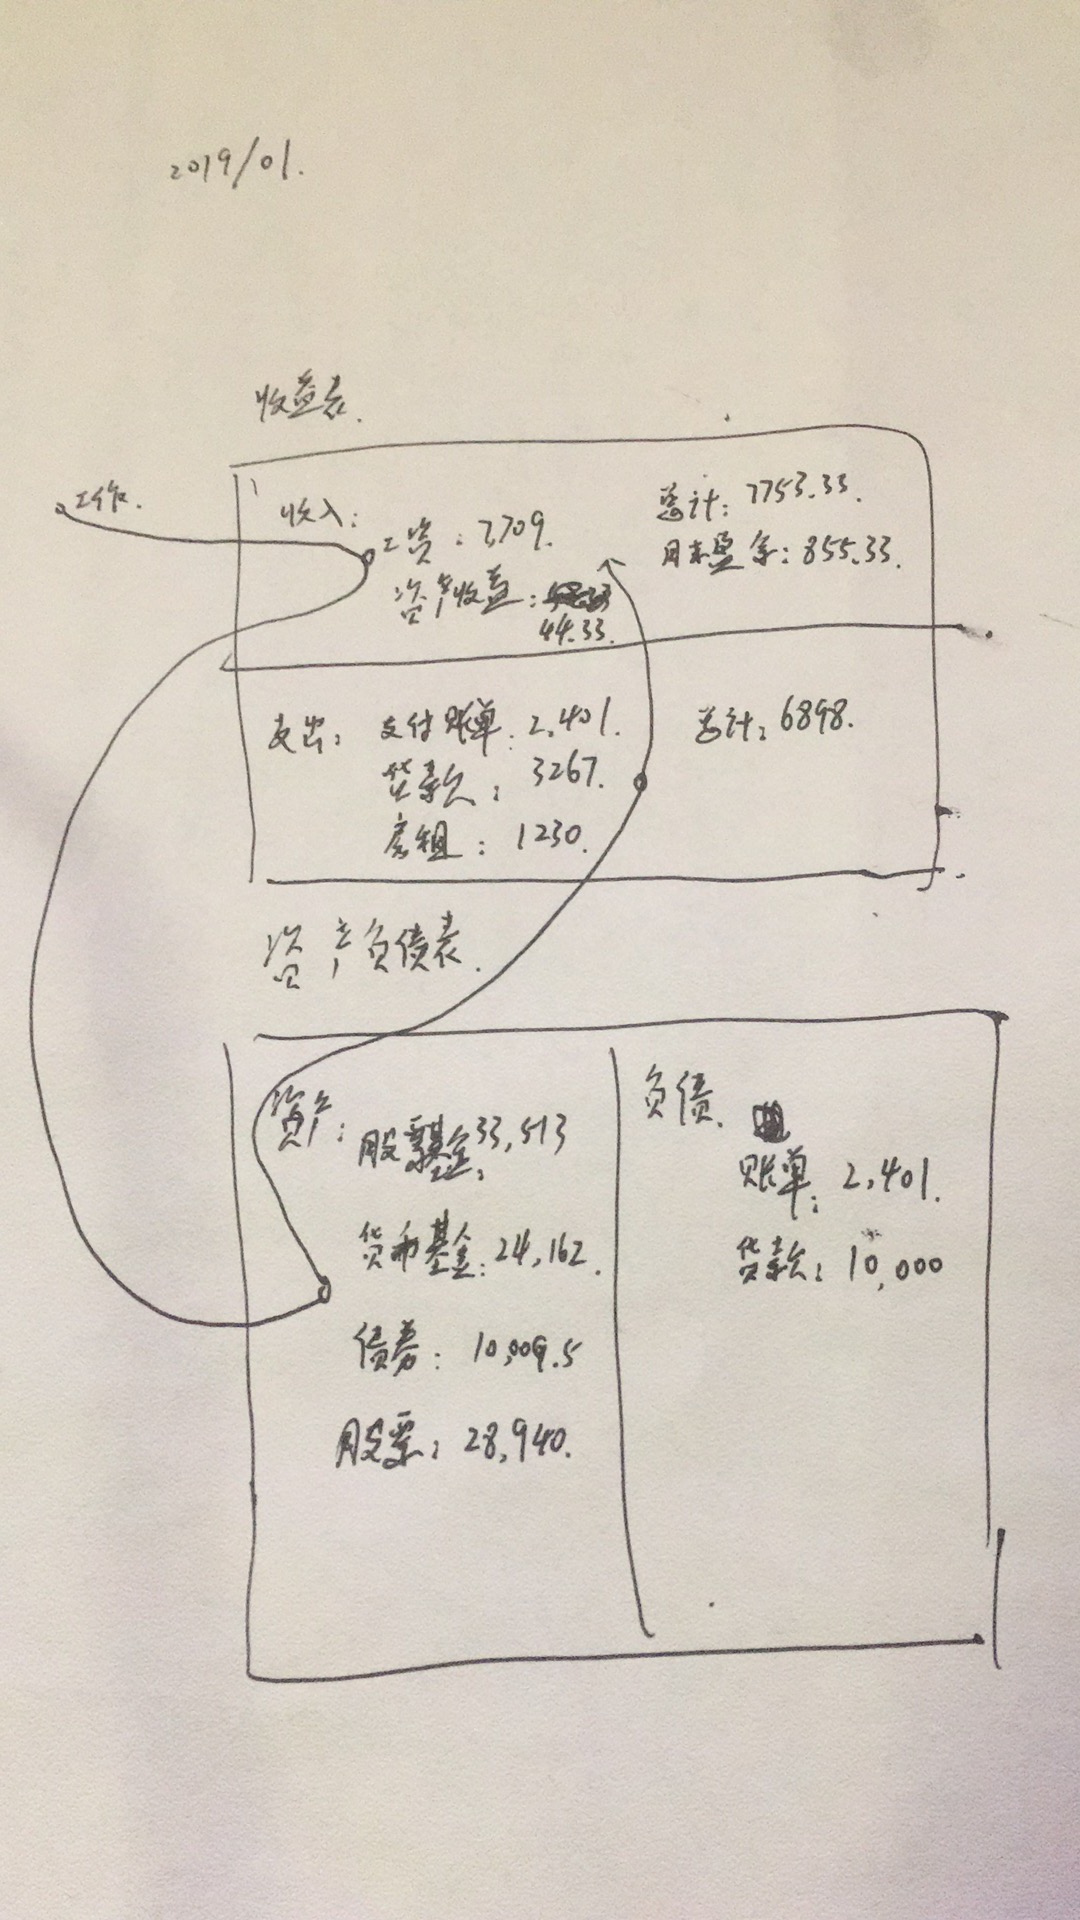 2019/01.
收益表.
工作.
收入:
工资: 7,709.
资产收益:
44.33.
总计: 7753.33.
月末盈余: 855.33.
支出: 支付账单: 2,401.
贷款: 3267.
房租: 1230.
总计: 6898.
资产负债表.
资产:
股票基金: 33,513
货币基金: 24,162.
债券: 10,009.5
股票: 28,940.
负债.
账单: 2,401.
贷款: 10,000